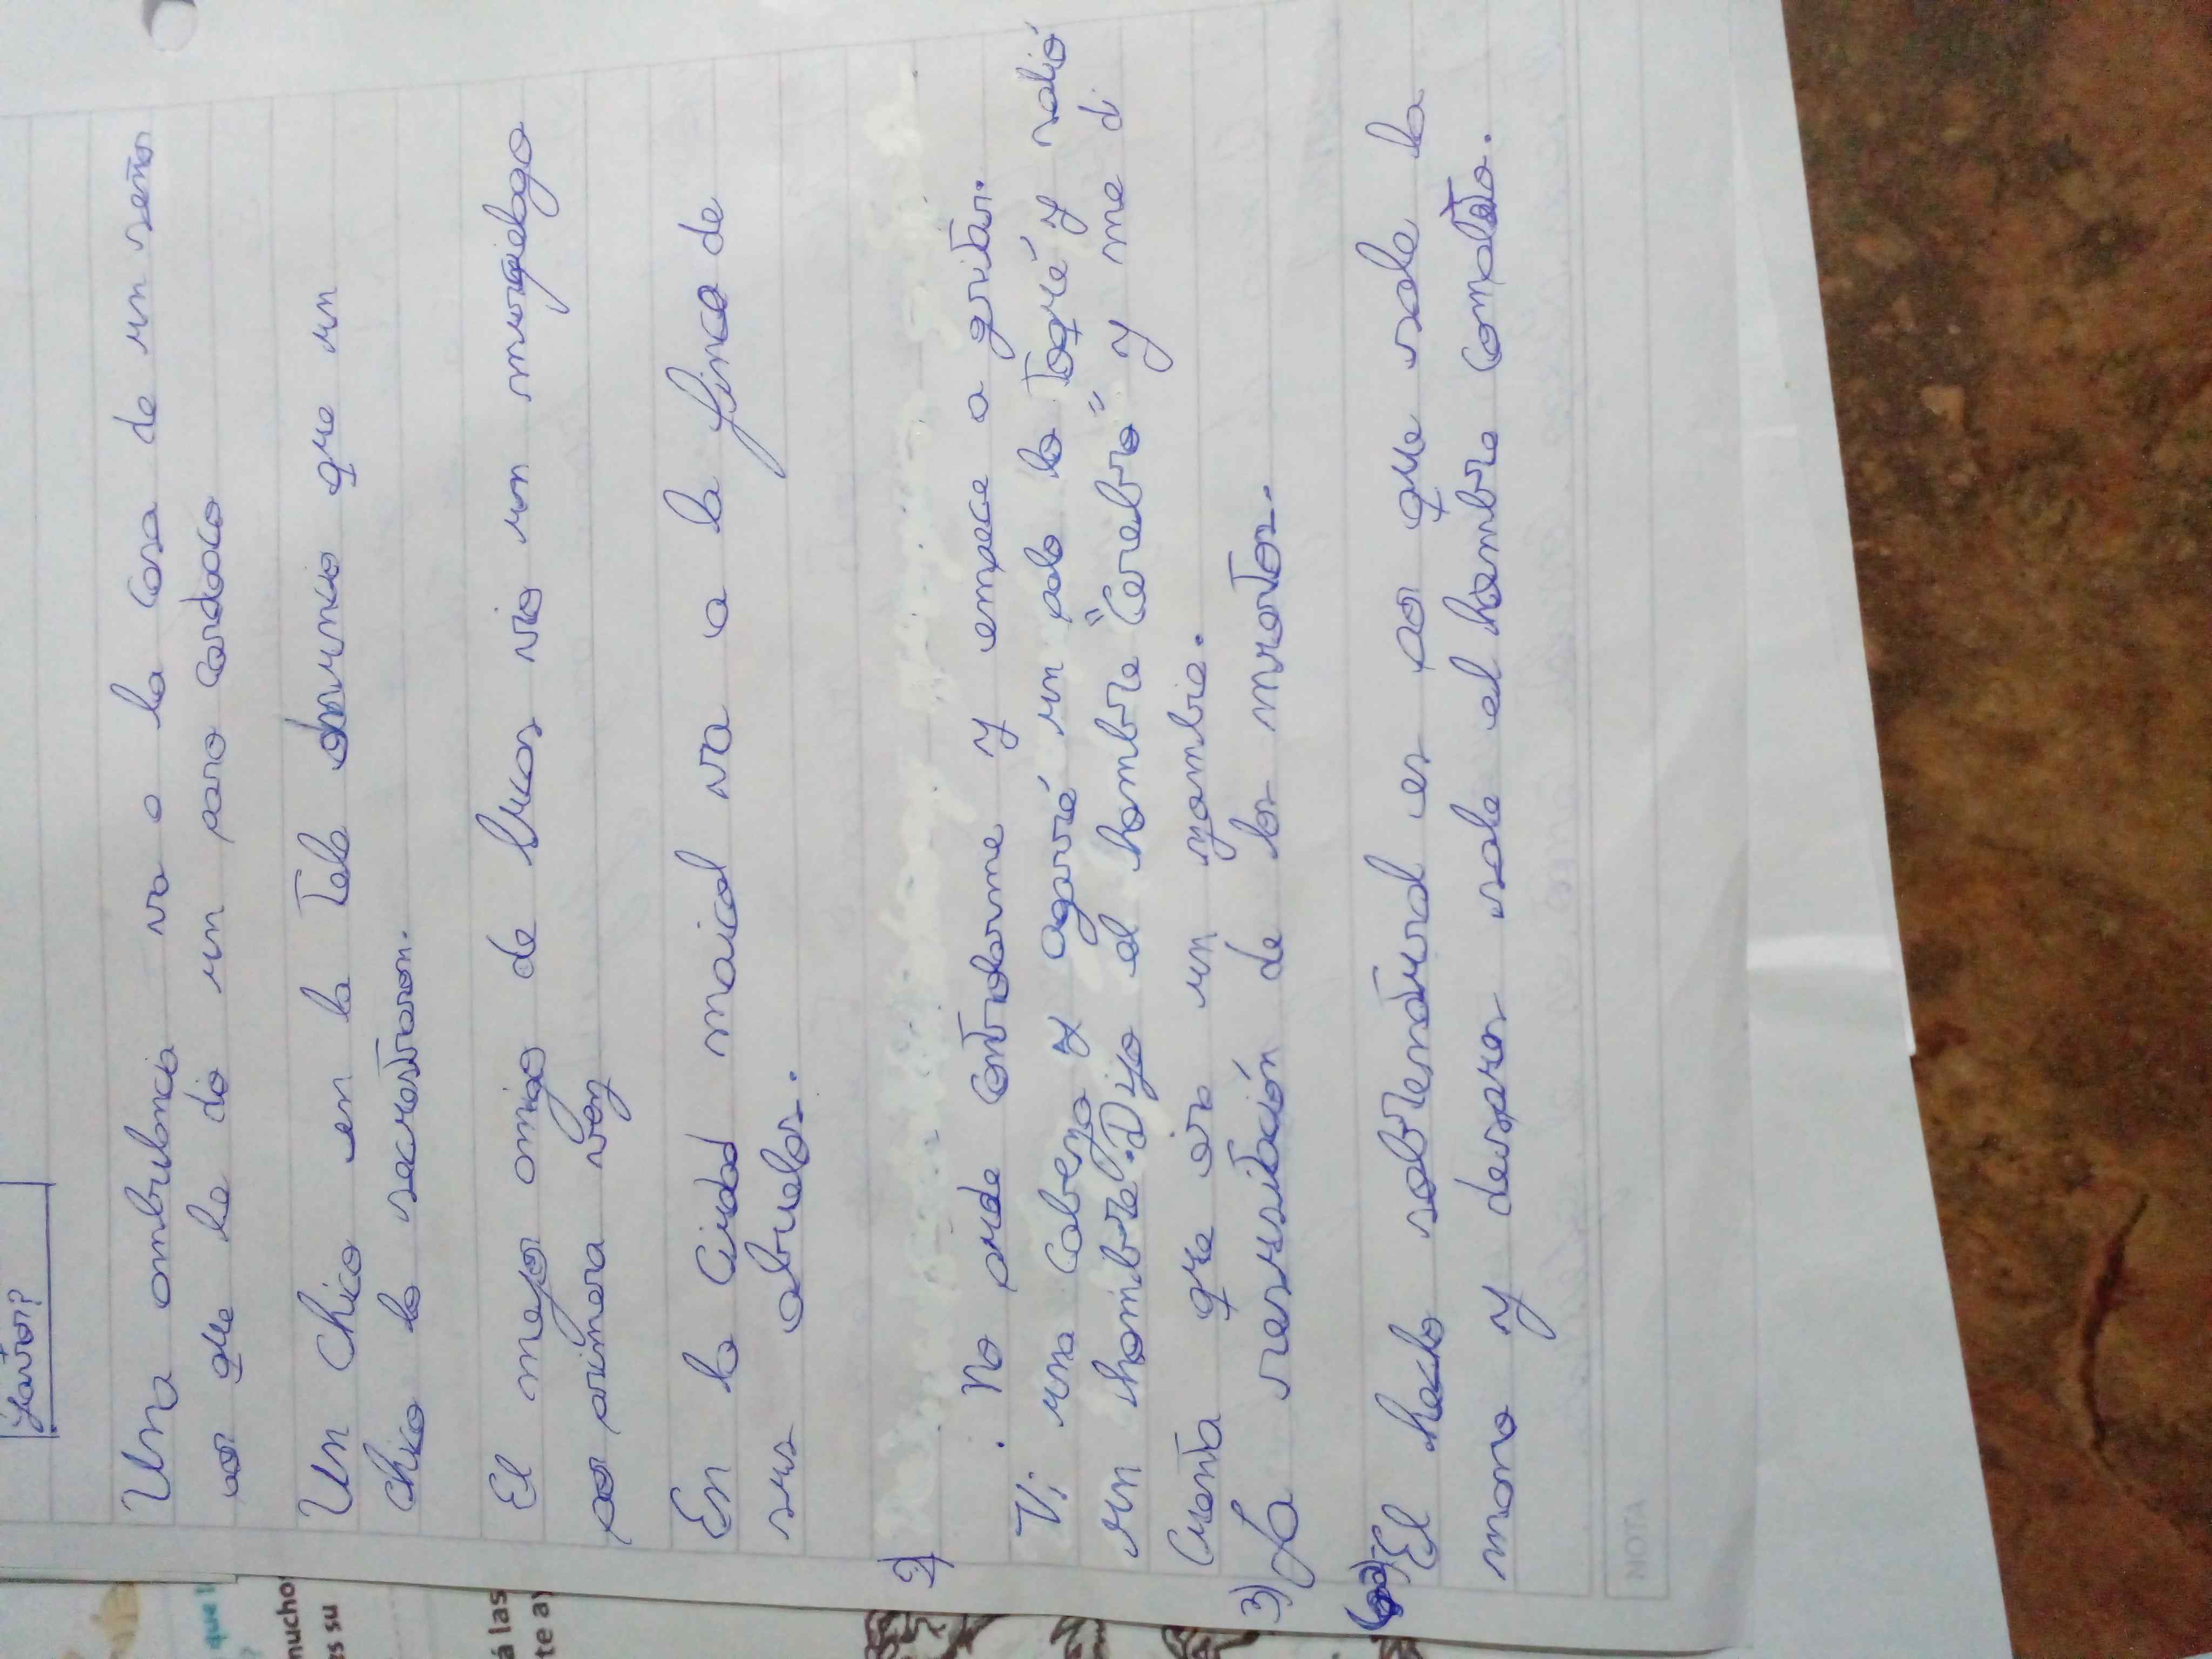 Una ambulancia va a la casa de un señ
or que le dio un paro cardiaco
Un chico en la Tele anuncio que un
chico lo secuestraron.
El mejor amigo de lucas vio un murcielago
por primera vez
En la Ciudad maicol va a la finca de
sus abuelos.
2)
. No pude controlarme y empece a gritar.
Vi una cabeza y agarré un palo lo Toqué y salió
un hombre. Dijo el hombre "Cerebro" y me di
Cuenta que era un zombie.
3) La resusitación de los muertos.
El hecho sobrenatural es por que sale la
mano y después sale el hombre completo.
NOTA
que
mucho
es su
á las
te ay